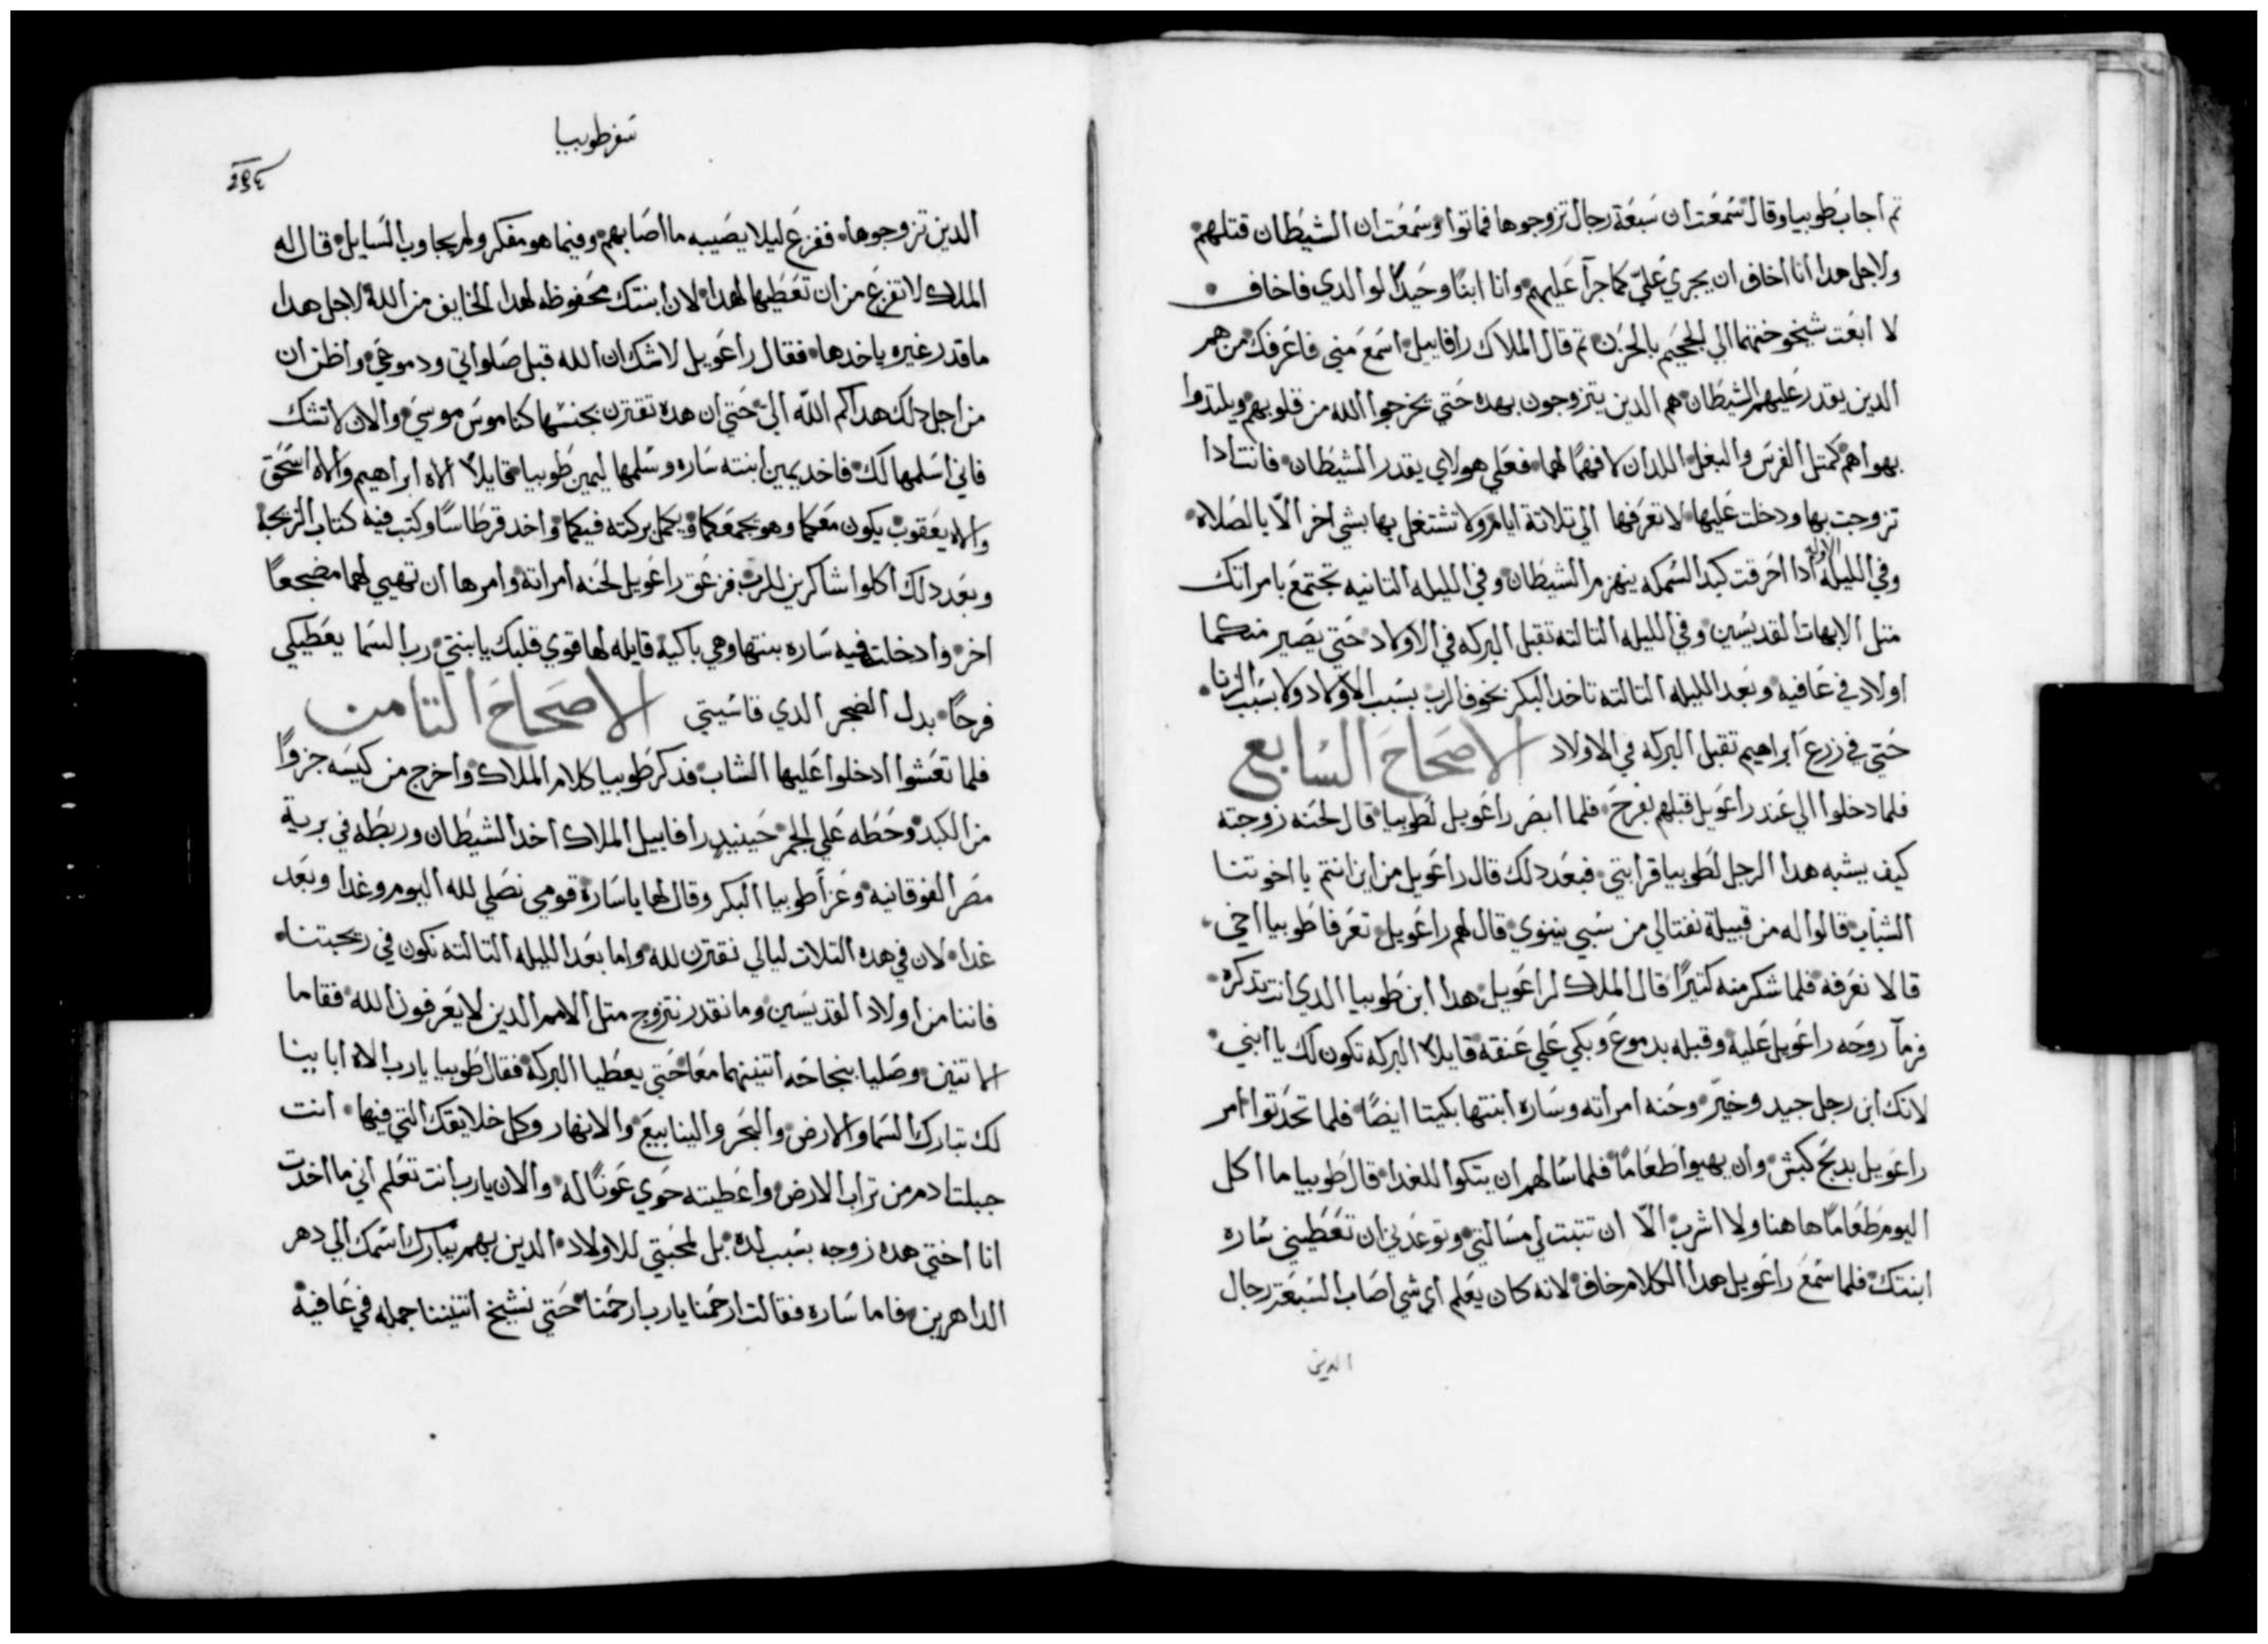 تم اجاب طوبيا وقال سمعت ان سبعة رجال تزوجوها فماتوا وسمعت ان الشيطان قتلهم
ولاجل هدا انا اخاف ان يجري علي كما جرآ عليهم وانا ابنًا وحيدًا لوالدي فاخاف
لا ابعت شيخوختهما الي الجحيم بالحزن تم قال الملاك رافاييل اسمع مني فاعرفك من هم
الدين يقدر عليهم الشيطان هم الدين يتزوجون بهده حتي يخرجوا الله من قلوبهم ويلتدوا
بهواهم كمتل الفرس والبغل اللدان لا فهمًا لهما فعلي هولاي يقدر الشيطان فانت ادا
تزوجت بها ودخلت عليها لا تعرفها الي تلاتة ايام ولا تشتغل بها بشي اخر الّا بالصلاه
وفي الليله الاوله ادا احرقت كبد السمكه ينهزم الشيطان وفي الليله التانيه تجتمع بامراتك
متل الابهات القديسين وفي الليله التالته تقبل البركه في الاولاد حتي يصير منكما
اولاد في عافيه وبعد الليله التالته تاخد البكر بخوف الرب بسبب الاولاد ولا بسبب الزنا
حتي في زرع ابراهيم تقبل البركه في الاولاد الاصحاح السابع
فلما دخلوا الي عند راعويل قبلهم بفرح فلما ابصر راعويل لطوبيا قال لحنه زوجته
كيف يشبه هدا الرجل لطوبيا قرابتي فبعد دلك قال راعويل من اين انتم يا اخوتنا
الشباب قالوا له من قبيلة نفتالي من سبي نينوي قال لهم راعويل تعرفا طوبيا اخي
قالا نعرفه فلما شكر منه كتيرًا قال الملاك لراعويل هدا ابن طوبيا الدي انت تدكره
فرمآ روحه راعويل عليه وقبله بدموع وبكي علي عنقه قايلًا البركه تكون لك يا ابني
لانك ابن رجل جيد وخير وحنه امراته وساره ابنتها بكيتا ايضًا فلما تحدتوا امر
راعويل بدبح كبش وان يهيوا طعامًا فلما سالهم ان يتكوا للغدا قال طوبيا ما اكل
اليوم طعامًا هاهنا ولا اشرب الّا ان تتبت لي مسالتي وتوعدني ان تعطيني ساره
ابنتك فلما سمع راعويل هدا الكلام خاف لانه كان يعلم اي شي اصاب السبعة رجال
الدين
سفر طوبيا
الدين تزوجوها ففزع ليلا يصيبه ما اصابهم وفيما هو مفكر ولم يجاوب السايل قال له
الملاك لا تفزع من ان تعطيها لهدا لان ابنتك محفوظه لهدا الخايف من الله لاجل هدا
ما قدر غيره ياخدها فقال راعويل لا شك ان الله قبل صلواتي ودموعي واظن ان
من اجل دلك هداكم الله الي حتي ان هده تقترن بجنسها كناموس موسي والان لا تشك
فاني اسلمها لك فاخد يمين ابنته ساره وسلمها ليمين طوبيا قايلًا الاه ابراهيم والاه اسحق
والاه يعقوب يكون معكما وهو يجمعكما ويكمل بركته فيكما واخد قرطاسًا وكتب فيه كتاب الزيجه
وبعد دلك اكلوا شاكرين للرب فزعق راعويل لحنه امراته وامرها ان تهيي لهما مضجعًا
اخر وادخلت فيه ساره بنتها وهي باكيه قايله لها قوي قلبك يا بنتي رب السما يعطيكي
فرحًا بدل الضجر الدي قاسيتي الاصحاح التامن
فلما تعشوا ادخلوا عليها الشاب فدكر طوبيا كلام الملاك واخرج من كيسه جزوًا
من الكبد وحطه علي الجمر حينيدٍ رافاييل الملاك اخد الشيطان وربطه في برية
مصر الفوقانيه وعزا طوبيا البكر وقال لها يا ساره قومي نصلي لله اليوم وغدا وبعد
غدا لان في هده التلات ليالي نقترن لله واما بعد الليله التالته نكون في زيجتنا
فاننا من اولاد القديسين وما نقدر نتزوج متل الامم الدين لا يعرفون الله فقاما
الاتنين وصليا بنجاحه اتنينهما معًا حتي يعطيا البركه فقال طوبيا يا رب الاه ابايينا
لك تبارك السما والارض والبحر والينابيع والانهار وكل خلايقك التي فيها انت
جبلت ادم من تراب الارض واعطيته حوي عونًا له والان يا رب انت تعلم اني ما اخدت
انا اختي هده زوجه بسبب لده بل لمحبتي للاولاد الدين بهم يبارك اسمك الي دهر
الداهرين فاما ساره فقالت ارحمنا يا رب ارحمنا حتي نشيخ اتنيننا جمله في عافيه